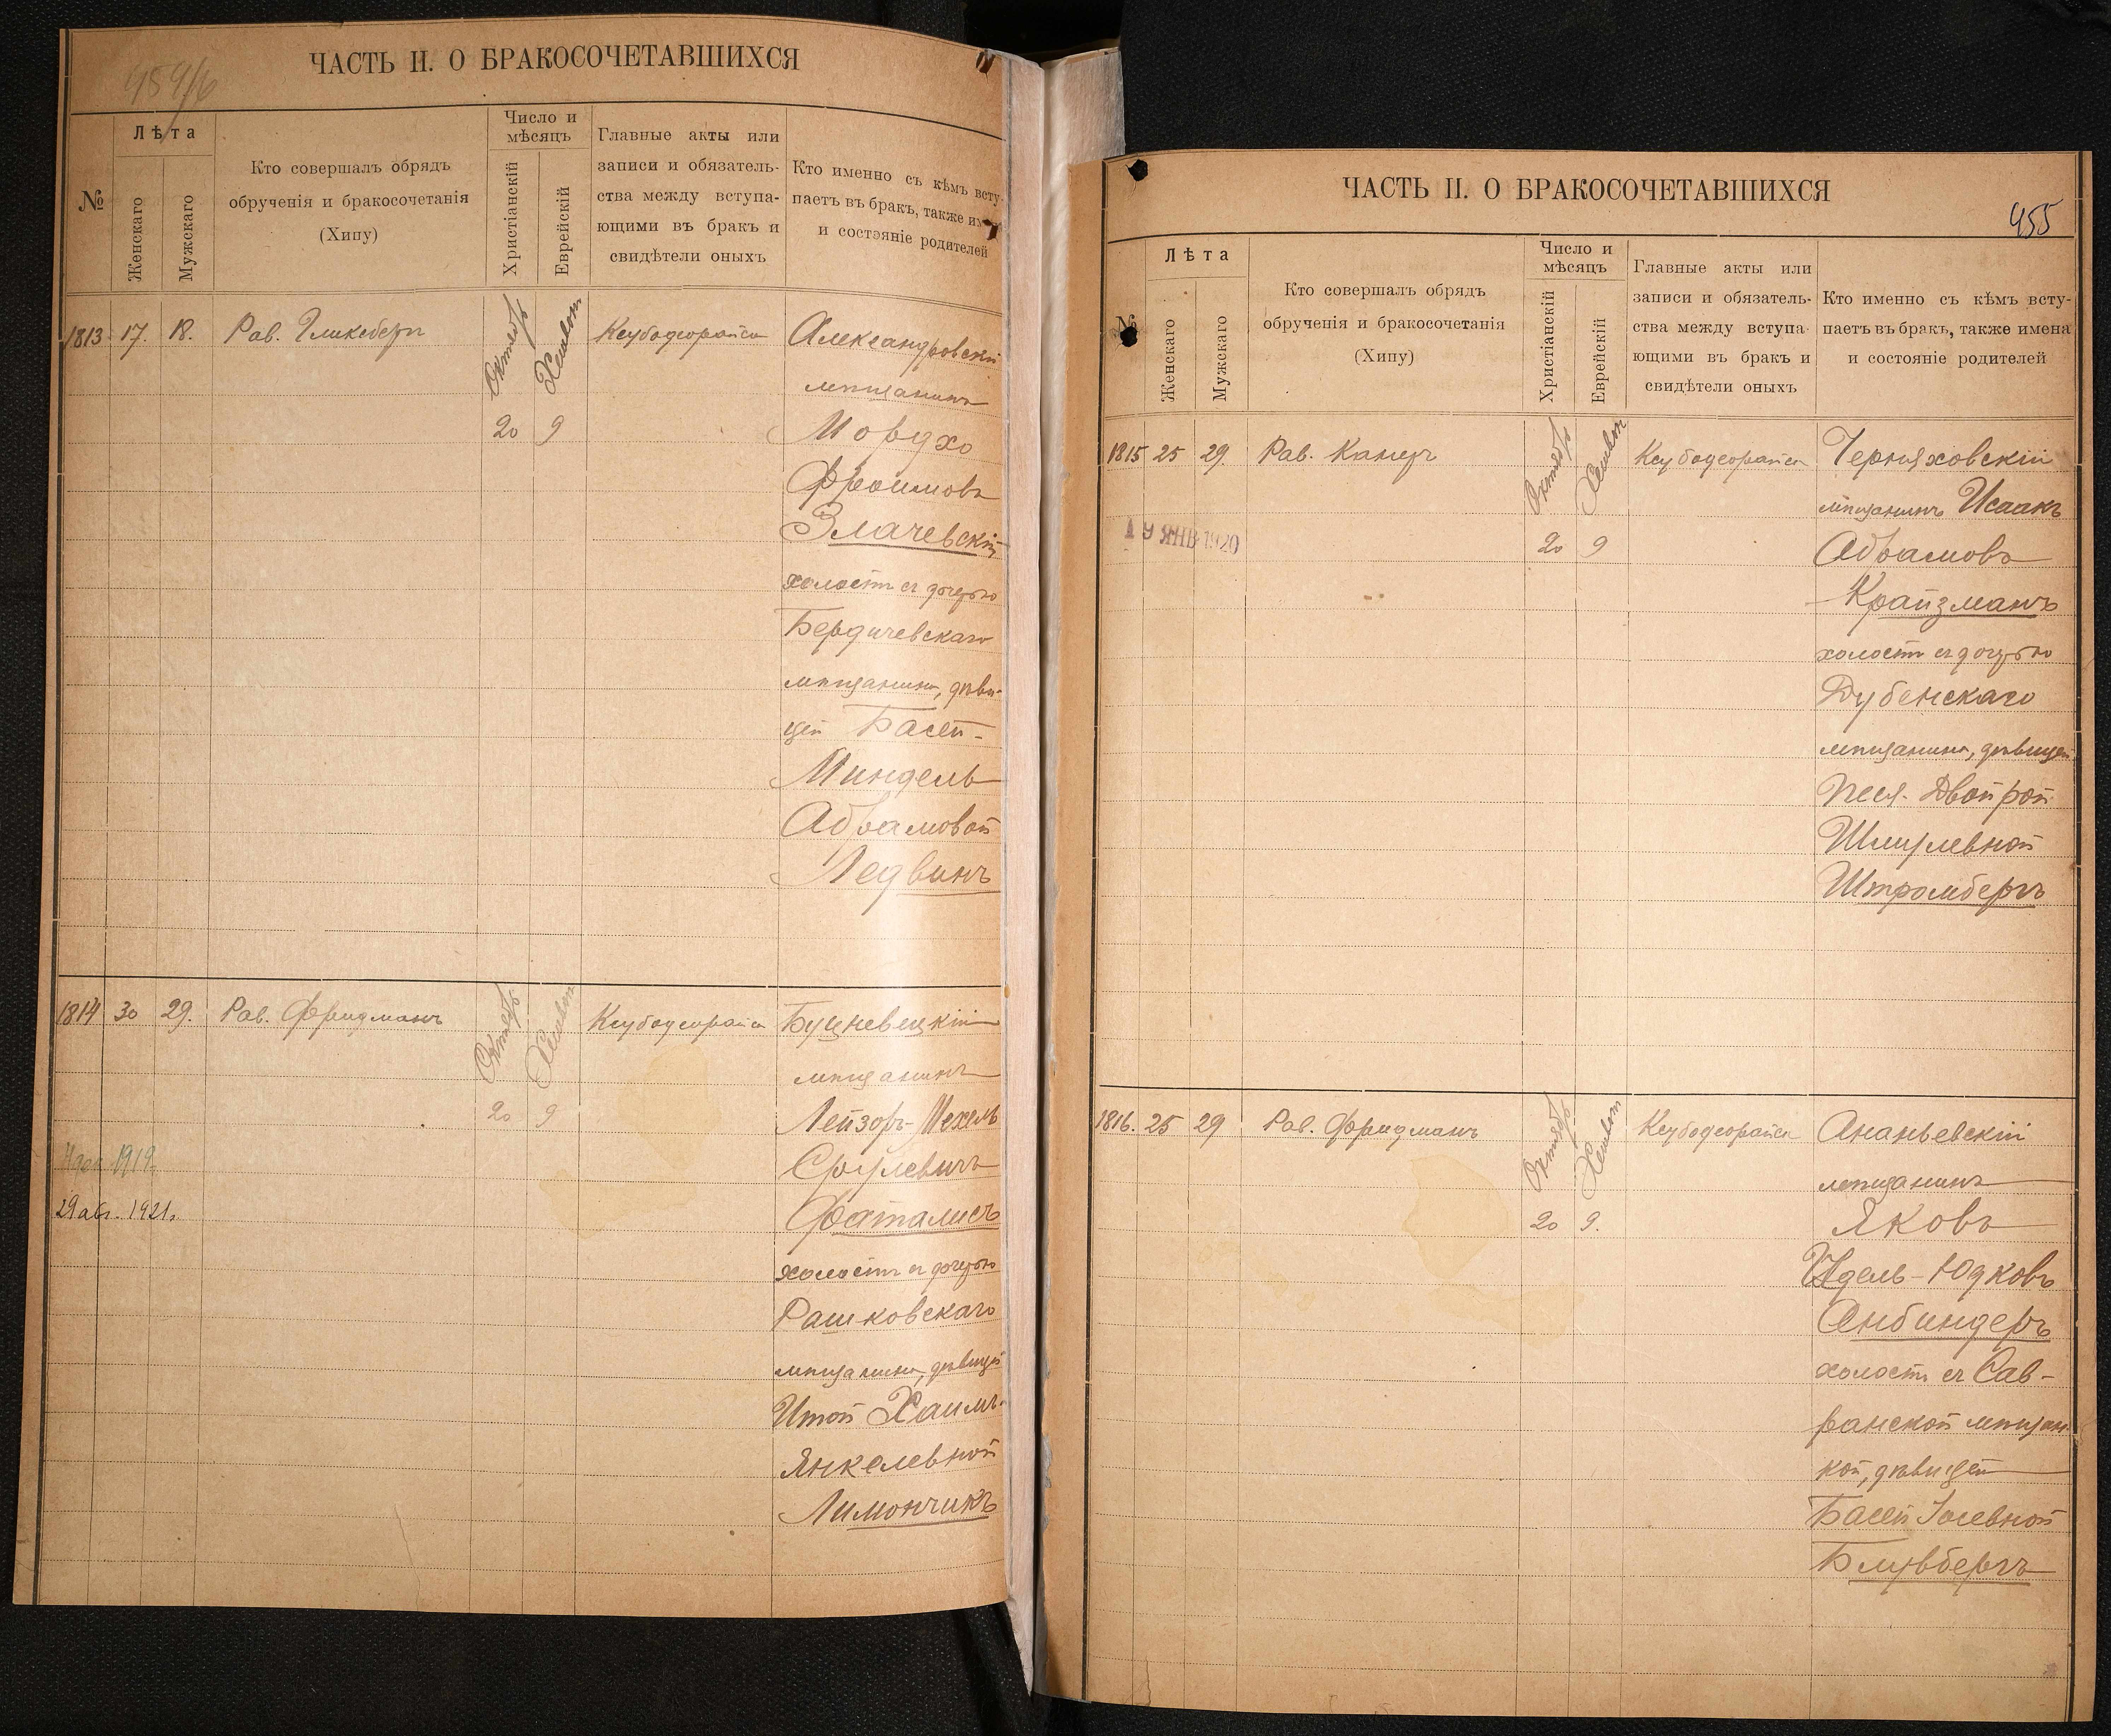 454/6
ЧАСТЬ II. О БРАКОСОЧЕТАВШИХСЯ
№
Лѣта
Женскаго
Мужскаго
Кто совершалъ обрядъ
обрученія и бракосочетанія
(Хипу)
Число и
мѣсяцъ
Христіанскій
Еврейскій
Главные акты или
записи и обязатель-
ства между вступа-
ющими въ бракъ и
свидѣтели оныхъ
Кто именно съ кѣмъ всту-
паетъ въ бракъ, также
и состояніе родителей
1813 17. 18. Рав. Гликсбергъ Октябрь Хешвон Ксубодеорайса Александровскій
мѣщанинъ
20 9 Мордхо
Фроимовъ
Злачевскій
холостъ съ дочерью
Бердичевскаго
мѣщанина, дѣви-
цей Басей-
Миндель
Абрамовой
Ледвинъ
1814 30 29. Рав. Фридманъ Октябрь Хешвон Ксубодеорайса Буцневецкій
мѣщанинъ
20 9 Лейзоръ-Мехель
Срулевичъ
1919
Фаталисъ
29 авг. 1921.
холостъ съ дочерью
Рашковскаго
мѣщанина, дѣвицей
Итой Хаимъ-
Янкелевной
Лимончикъ
ЧАСТЬ II. О БРАКОСОЧЕТАВШИХСЯ
455
№
Лѣта
Женскаго
Мужскаго
Кто совершалъ обрядъ
обрученія и бракосочетанія
(Хипу)
Число и
мѣсяцъ
Христіанскій
Еврейскій
Главные акты или
записи и обязатель-
ства между вступа-
ющими въ бракъ и
свидѣтели оныхъ
Кто именно съ кѣмъ всту-
паетъ въ бракъ, также имена
и состояніе родителей
1815 25 29. Рав. Канеръ Октябрь Хешвон Ксубодеорайса Черняховскій
мѣщанинъ Исаакъ
19 ЯНВ 1920
20 9 Абрамовъ
Крайзманъ
холостъ съ дочерью
Дубенскаго
мѣщанина, дѣвицей
Песя-Двойрой
Шмулевной
Штромбергъ
1816. 25 29 Рав. Фридманъ Октябрь Хешвон Ксубодеорайса Ананьевскій
мѣщанинъ
20 9. Яковъ
Идель-Юдковъ
Анбиндеръ
холостъ съ Сав-
ранской мѣщан-
кой, дѣвицей
Басей Іосевной
Блувбергъ